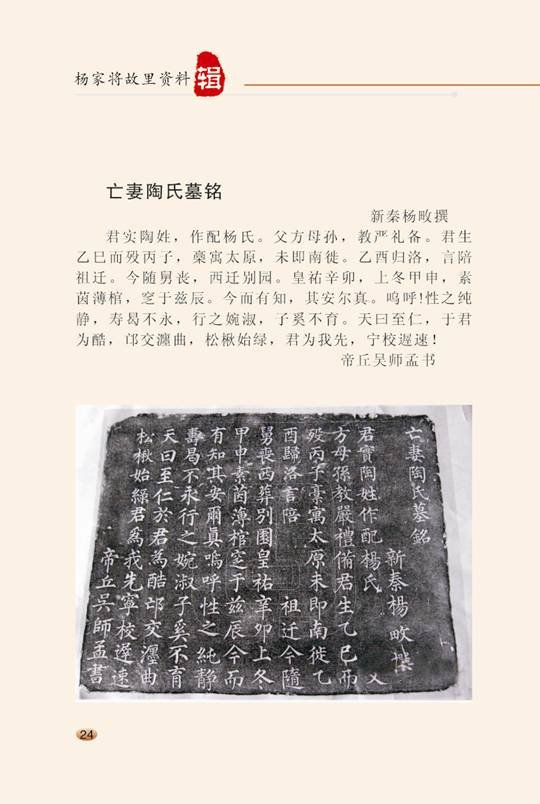 杨家将故里资料辑
亡妻陶氏墓铭
新秦杨畋撰
君实陶姓，作配杨氏。父方母孙，教严礼备。君生
乙巳而殁丙子，藁寓太原，未即南徙。乙酉归洛，言陪
祖迁。今随舅丧，西迁别园。皇祐辛卯，上冬甲申，素
茵薄棺，窆于兹辰。今而有知，其安尔真。呜呼!性之纯
静，寿曷不永，行之婉淑，子奚不育。天曰至仁，于君
为酷，邙交瀍曲，松楸始绿，君为我先，宁校遲速！
帝丘吴师孟书
亡妻陶氏墓銘
新秦楊畋撰
君實陶姓作配楊氏父
方母孫教嚴禮備君生乙巳而
殁丙子藁寓太原未即南徙乙
酉歸洛言陪祖迁今隨
舅喪西葬別園皇祐辛卯上冬
甲申素茵薄棺窆于兹辰今而
有知其安爾真嗚呼性之純静
壽曷不永行之婉淑子奚不育
天曰至仁於君為酷邙交瀍曲
松楸始綠君為我先寧校遲速
帝丘吴師孟書
24